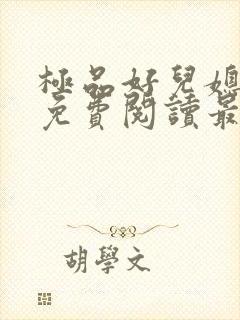 極品好兒媳
免費閱讀最
胡學文